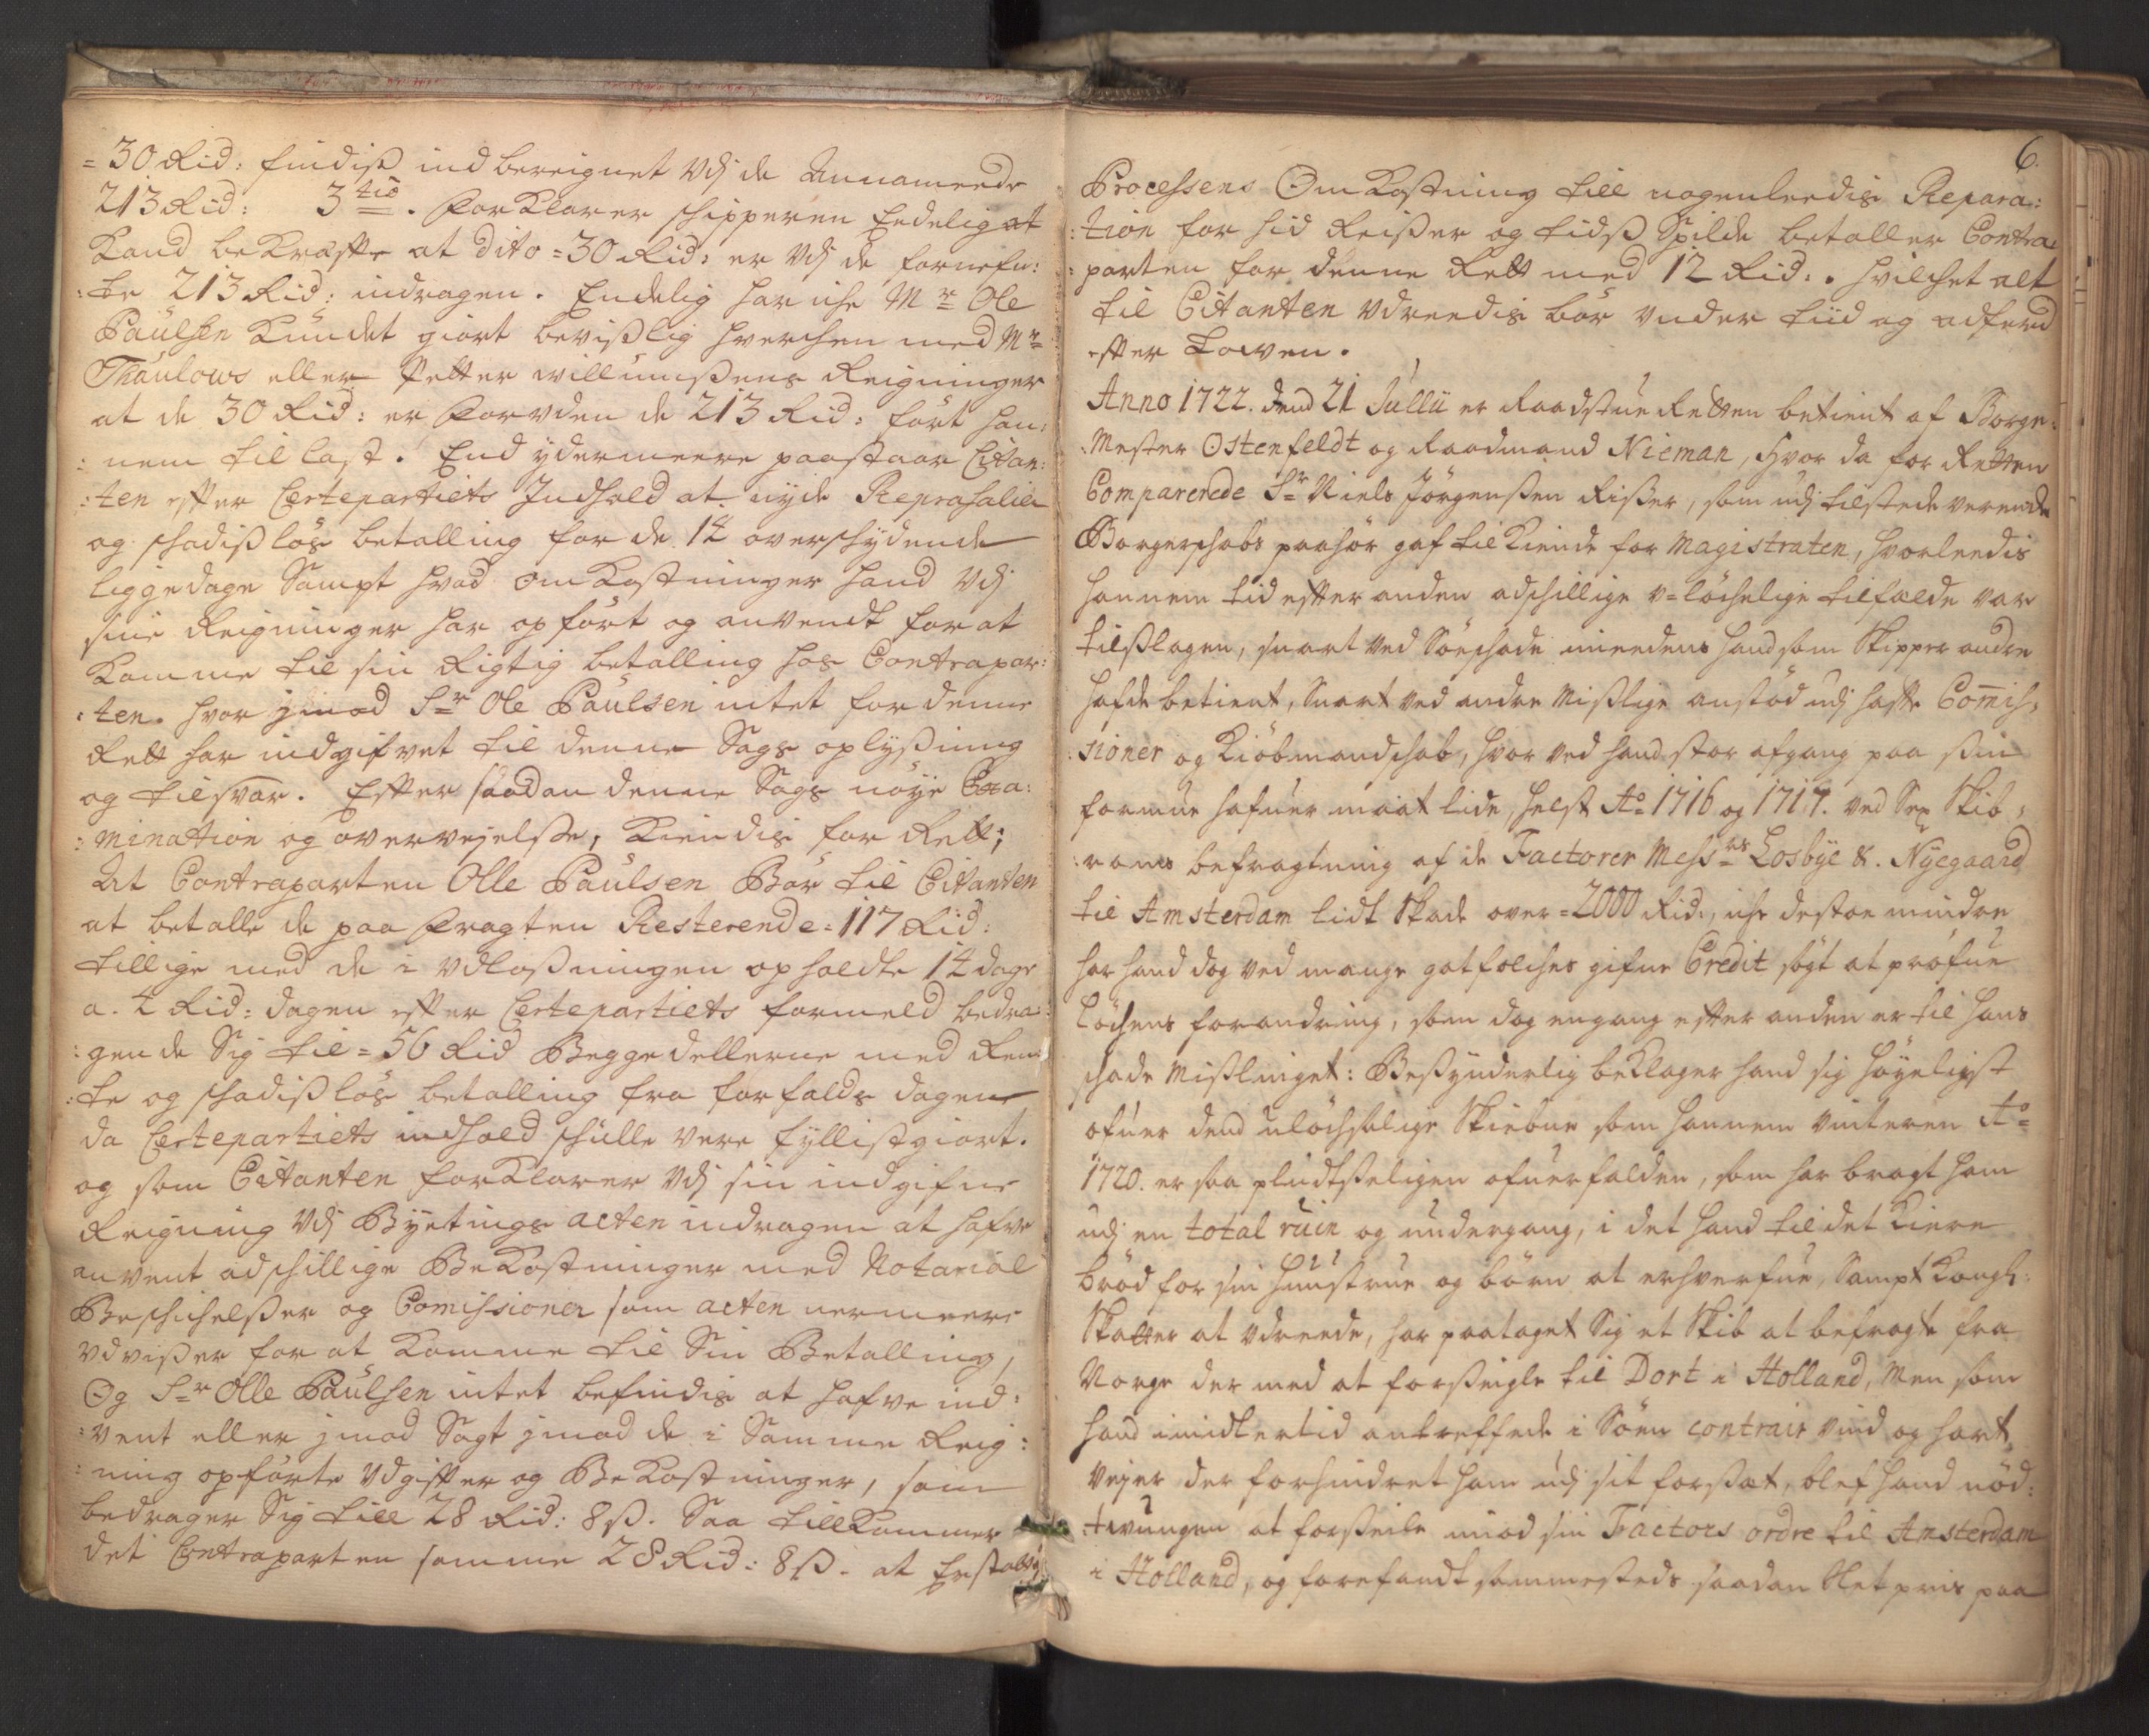 =30 Rid: findiß ind bereignet Vdj de Annameede
213 Rid: 3tiò. Forklarer schipperen Eedelig at
Kand bekræffte at dito =30 Rid: er Vdj de fornefn:
:te 213 Rid: indragen. Endelig har iche Mr Ole
Paulsen Kundet giort bevißlig hverchen med Mr
Thaulows eller Petter willumßens Reigninger
at de 30 Rid: er Forvden de 213 Rid: fört han:
:nem til last. End ydermeere paastaar Citan:
:ten effter Certepartiets Indhold at nyde Reprasalier
og schadißlös betalling for de 14 overschydende
liggedage Sampt hvad omkostninger hand Vdj
sine Reigninger har opfört og anvendt for at
Komme til sin Rigtig betalling hos Contrapar:
:ten. hvor jmod Sr Ole Paulsen intet for denne
Rett har indgifvet til denne Sags oplysßning
og tilsvar. Effter saadan denne Sags nöye Exa:
:mination og overvejelse, Kiendis for Rett;
At Contraparten Olle Paulsen Bör til Citanten
at betalle de paa Fragten Resterende =117 Rid:
tillige med de i Vdloßningen opholdte 14 dage
a. 4 Rid: dagen effter Certepartiets formeld bedra:
:gende Sig til =56 Rid Beggedellerne med Ren:
:te og schadißlös betalling fra forfalds dagen
da Certepartiets indhold schulle vere fyllistgiort.
og som Citanten forklarer Vdj sin indgifne
Reigning Vdj Byetings acten indragen at hafve
anvent adschillige Bekostninger med Notarial
Beschichelßer og Comissioner som acten nermeere
Vdvißer for at Komme til Sin Betalling,
Og Sr Olle Paulsen intet befindis at hafve ind:
:vent eller jmod Sagt jmod de i Samme Reig:
:ning opförte Vdgiffter og Bekostninger, som
bedrager Sig till 28 Rid: 8 ß. Saa tillkommer
det Contraparten samme 28 Rid: 8 ß. at Erstatte
6.
Processens Omkostning till nogenleedis Repara:
:tion for hid Reißer og tidß Spilde betaller Contra:
:parten for denne Rett med 12 Rid:. hvilchet alt
til Citanten Vdreedis bör under Lüd og adferd
effter Lowen.
Anno 1722. dend 21 Jullii er Raadstue Retten betient af Borge:
:Mester Ostenfeldt og Raadmand Nieman, hvor da for Retten
Comparerede Sr Niels Jörgenßen Rißer, som udj tilstede verende
Borgerschabs paahör gaf tilkiende for Magistraten, hvorleedis
hannem tid effter anden adschillige u=löchelige tilfælde var
tilßlagen, snart ved Söeschade imeedens hand som Skipper andre
hafde betient, Snart ved andre Mißlige anstöd udj haffte Comis:
:sioner og Kiöbmandschab, hvor ved hand stor afgang paa ßin
formue hafuer maat lide, helst Ao 1716 og 1717. ved Sex Skib:
:roms befragtning af de Factorer Messrs Losbye &. Nyegaard
til Amsterdam lidt Skade over =2000 Rid:, iche destoe mindre
har hand dog ved mange gotfolches gifne Credit sögt at pröfue
Löchens forandring, som dog engang effter anden er til hans
schade Mißlinget: Beßynderlig beklager hand sig höyeligst
ofuer dend ulöchsalige Skiebne som hannem vinteren Ao
1720. er saa pludtßeligen ofuerfalden, som har bragt ham
udj en total ruin og undergang, i det hand til det Kiere
bröd for sin huustrue og börn at erhverfue, Sampt Kongl:
Skatter at Vdreede, har paataget Sig et Skib at befragte fra
Norge der med at forßeigle til Dort i Holland, Men som
hand imidlertid antreffede i Söen contrair vind og hart
vejer der forhindret ham udj sit forßæt, blef hand nöd:
:tvungen at forßeile imod sin Factors ordre til Amsterdam
i Holland, og forefandt sammesteds saadan slet pris paa